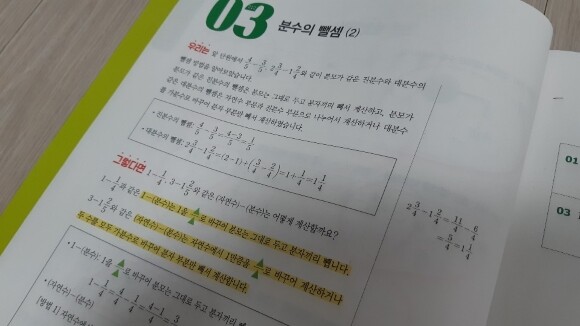 03 분수의 뺄셈 (2)
우리는 앞 단원에서 4/5-3/5, 2 3/4-1 2/4와 같이 분모가 같은 진분수와 대분수의
뺄셈 방법을 알아보았습니다.
분모가 같은 진분수의 뺄셈은 분모는 그대로 두고 분자끼리 빼서 계산하고, 분모가
같은 대분수의 뺄셈은 자연수 부분과 진분수 부분으로 나누어서 계산하거나 대분수
를 가분수로 바꾸어 분자 부분만 빼서 계산하였습니다.
• 진분수의 뺄셈: 4/5-3/5=4-3/5=1/5
• 대분수의 뺄셈: 2 3/4-1 2/4=(2-1)+(3/4-2/4)=1+1/4=1 1/4
2 3/4-1 2/4=11/4-6/4
=5/4=1 1/4
그렇다면 1-1/4, 3-1 2/4와 같은 (자연수)-(분수)는 어떻게 계산할까요?
1-1/4과 같은 1-(분수)는 1을 ▲/▲로 바꾸어 분모는 그대로 두고 분자끼리 뺍니다.
3-1 2/4와 같은 (자연수)-(분수)는 자연수에서 1만큼을 ▲/▲로 바꾸어 계산하거나
두 수를 모두 가분수로 바꾸어 분자 부분만 빼서 계산합니다.
• 1-(분수): 1을 ▲/▲로 바꾸어 분모는 그대로 두고 분자끼리
1-1/4=4/4-1/4=4-1/4=3/4
• (자연수)-(분수)
[방법 1] 자연수에서
01
03